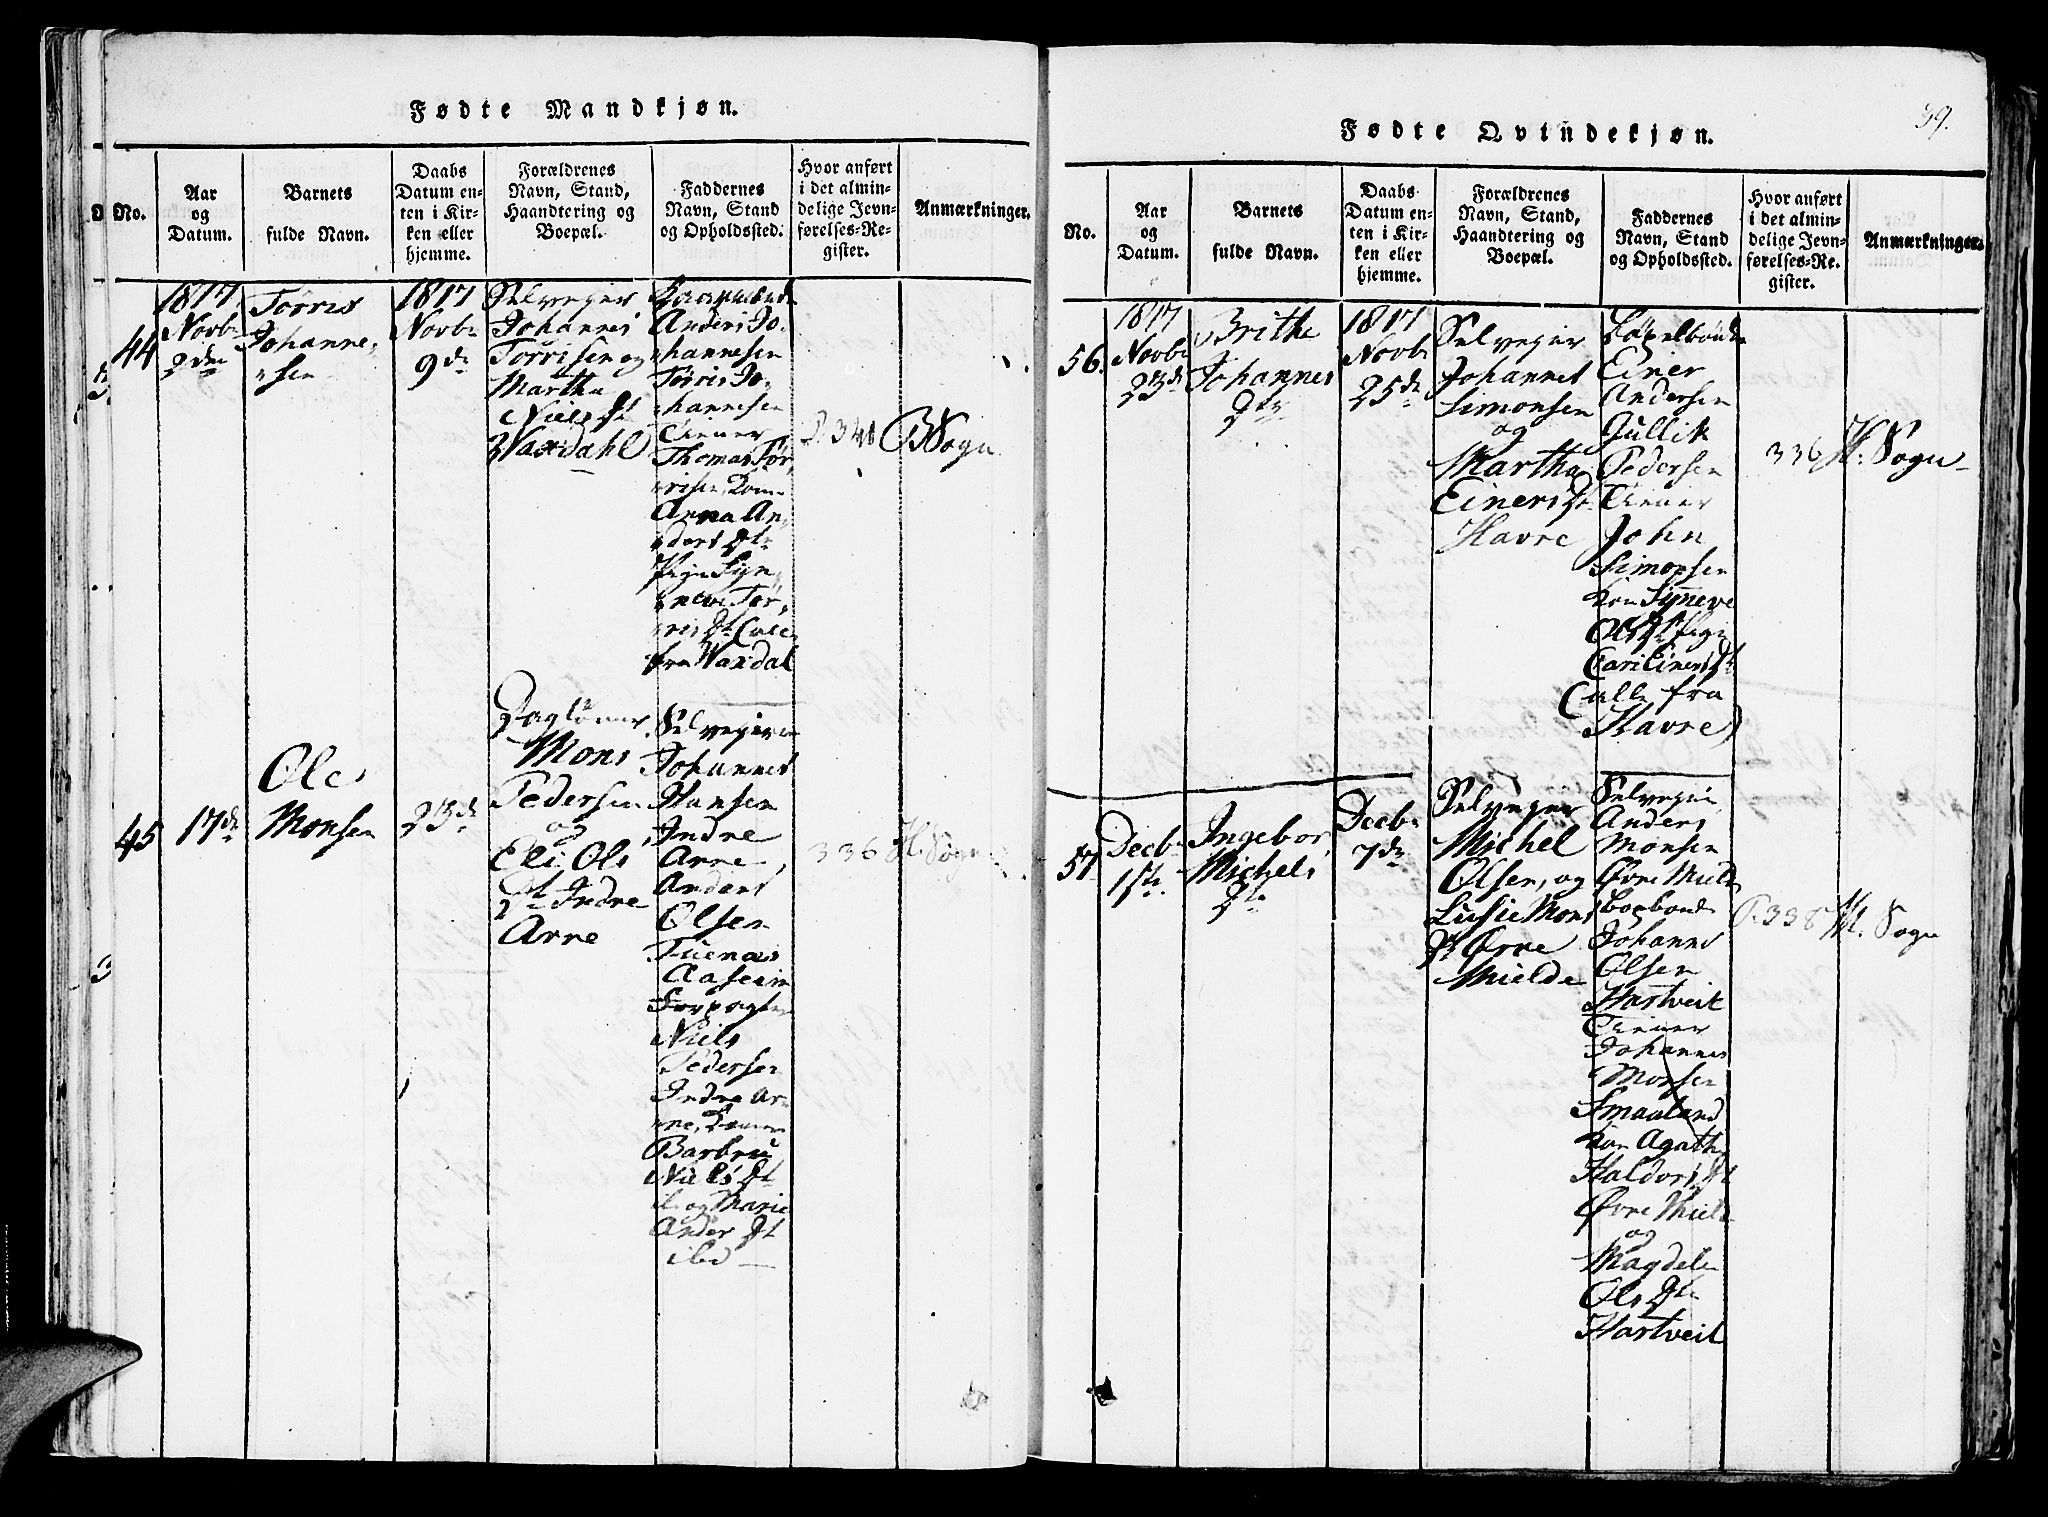 Fødte Mandkjøn.
No.
Aar
og
Datum.
Barnets
fulde Navn.
Daabs
Datum en-
ten i Kir-
ken eller
hjemme.
Forældrenes
Navn, Stand,
Haandtering og
Boepæl.
Faddernes
Navn, Stand
og Opholdssted.
Hvor anført
i det almin-
delige Jevn-
førelses-Re-
gister.
Anmærkninger.
44
1817
Novb
2den
Torris
Johanne-
sen
1817
Novb
9de
Selveyer
Johannes
Torrisen og
Martha
Niels Dt
Waxdahl
Anders Jo-
hannesen
Torris Jo-
hannesen
Tiener
Thomas Tør-
risen, Kone
Anna An-
ders Dtr
Pige Syn-
neve Tør-
ris Dt (alle
fra Waxdal
P. 348
B Sogn
45
17de
Ole
Monsen
23de
Dagløner
Mons
Pedersen
og
Eli Ols
Dt Indre
Arne
Selveyer
Johannes
Hansen
Indre
Arne,
Anders
Olsen
Aaseim
Forpagter
Niels
Pedersen
Indre Ar-
ne, Koner
Barbru
Niels Dt
og Marie
Anders Dt
ibd
336
H. Sogn
Fødte Qvindekjøn.
39.
No.
Aar
og
Datum.
Barnets
fulde Navn.
Daabs
Datum en-
ten i Kir-
ken eller
hjemme.
Forældrenes
Navn, Stand,
Haandtering og
Boepæl.
Faddernes
Navn, Stand
og Opholdssted.
Hvor anført
i det almin-
delige Jevn-
førelses-Re-
gister.
Anmærkninger.
56.
1817
Novb
23de
Brithe
Johannes
Dtr
1817
Novb
25de
Selveyer
Johannes
Simonsen
og
Martha
Einers Dtr
Havre
Einer
Andersen
Gullik
Pedersen
Tiener
John
Simonsen
Kone Syneve
Ols Dt Pige
Cari Einers Dt
(alle fra
Havre)
336
H: Sogn
57
Decb
1ste
Ingebor
Michels
Dtr
Decb
7de
Selveyer
Michel
Olsen, og
Lusie Mons
Dt Øvre
Mielde
Selveyer
Anders
Monsen
Øvre Mielde
Johannes
Olsen
Hartveit
Tiener
Johannes
Monsen
Smaaland
Kone Agathe
Haldors Dt
Øvre Mielde
og
Magdele
Ols Dtr
Hartveit
P. 338
H. Sogn